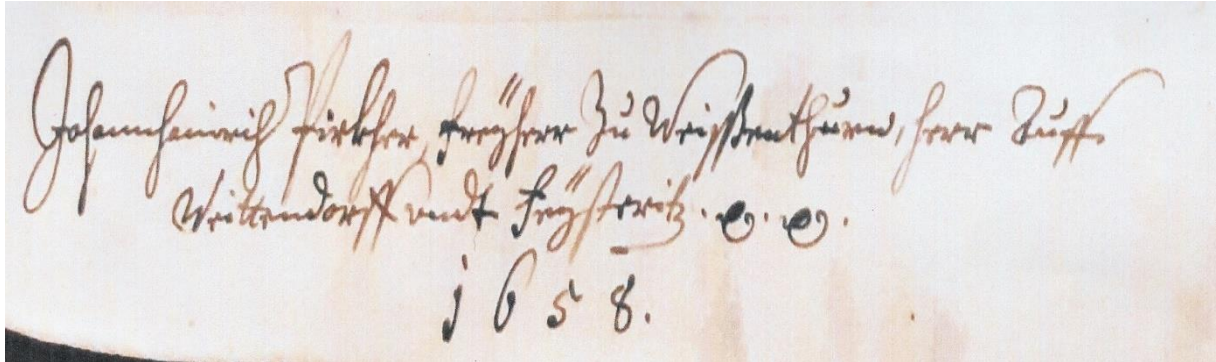 Johannhainrich Pirkher, Freÿherr Zu Weissenthurn, herr Auff
Weittendorff vndt Feÿstritz. etc. etc.
1658.